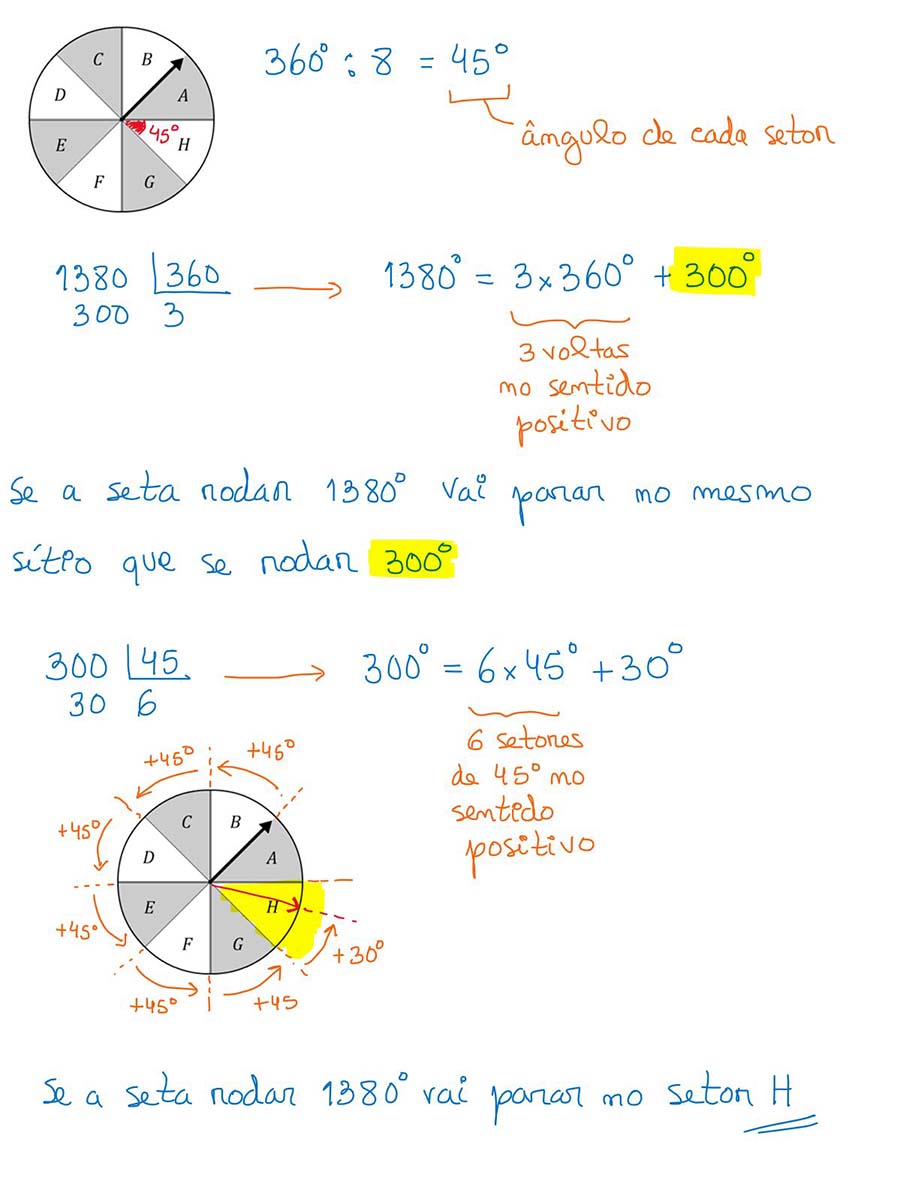 C B
D A
E H
F G
45°
360° : 8 = 45°
ângulo de cada setor
1380 360
300 3
1380° = 3 x 360° + 300°
3 voltas
no sentido
positivo
Se a seta rodar 1380° vai parar no mesmo
sítio que se rodar 300°
300 45
30 6
300° = 6 x 45° + 30°
6 setores
de 45° no
sentido
positivo
+45° +45°
+45°
+45°
+45° +45
+30°
C B
D A
E H
F G
Se a seta rodar 1380° vai parar no setor H